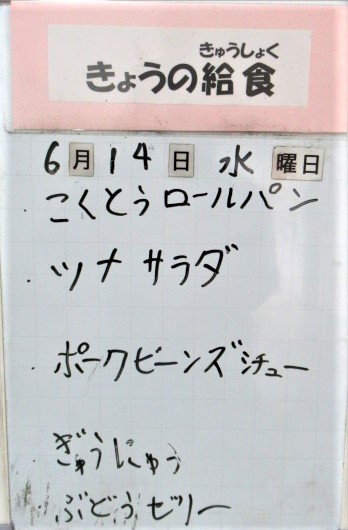 きゅうしょく
きょうの給食
6月14日 水曜日
こくとうロールパン
ツナサラダ
ポークビーンズシチュー
ぎゅうにゅう
ぶどうゼリー